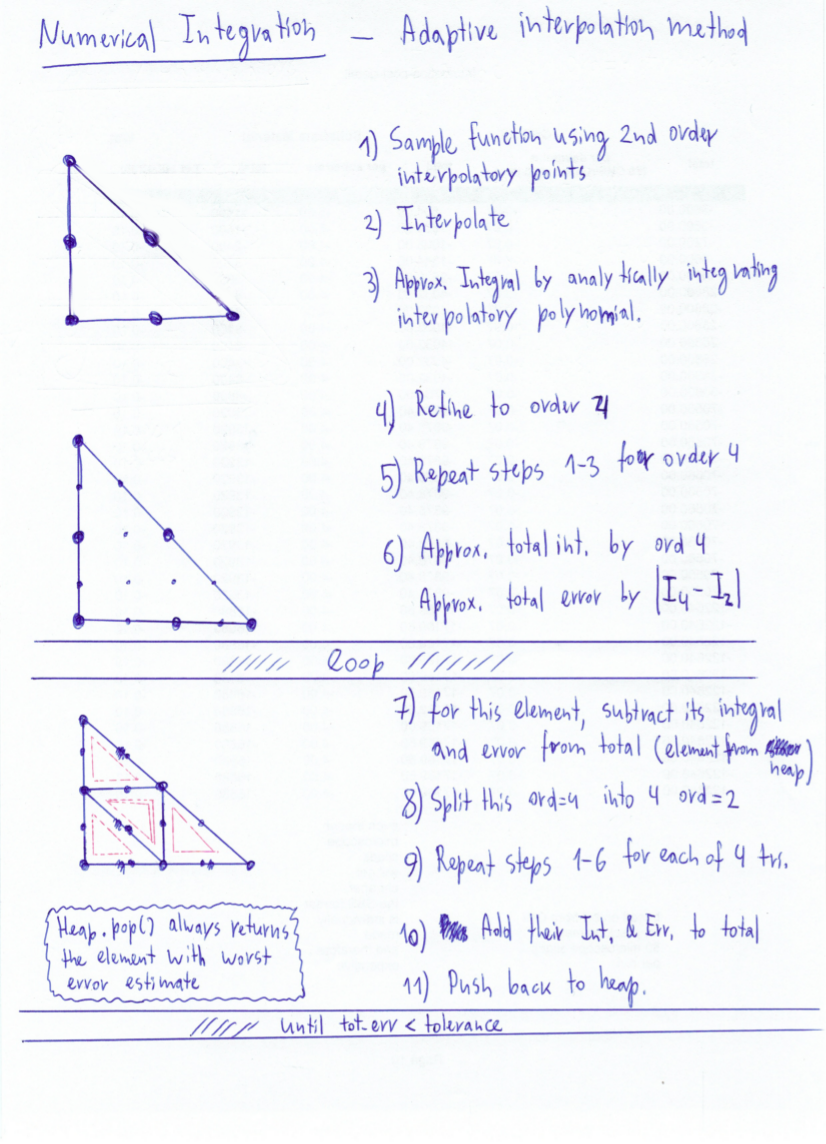 Numerical Integration — Adaptive interpolation method
1) Sample function using 2nd order
interpolatory points
2) Interpolate
3) Approx. Integral by analytically integrating
interpolatory polynomial.
4) Refine to order 4
5) Repeat steps 1-3 for order 4
6) Approx. total int. by ord 4
Approx. total error by |I4 - I2|
////// loop ///////
7) for this element, subtract its integral
and error from total (element from heap)
8) Split this ord=4 into 4 ord=2
9) Repeat steps 1-6 for each of 4 tri.
10) Add their Int. & Err. to total
11) Push back to heap.
Heap.pop() always returns
the element with worst
error estimate
////// until tot-err < tolerance